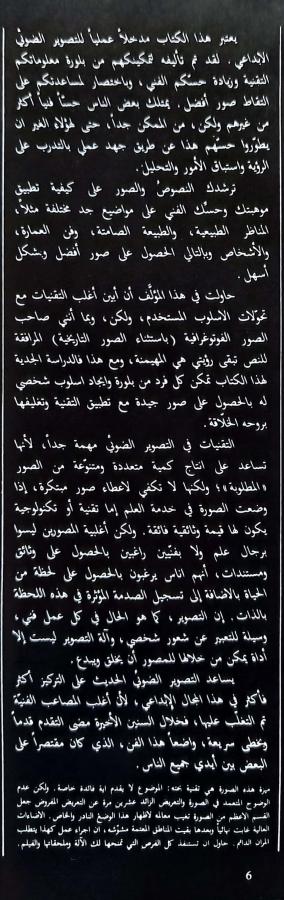 يعتبر هذا الكتاب مدخلاً عملياً للتصوير الضوئي
الإبداعي. لقد تم تأليفه لتمكينكم من بلورة معلوماتكم
التقنية وزيادة حسكم الفني، وباختصار لمساعدتكم على
التقاط صور أفضل. يمتلك بعض الناس حساً فنياً أكثر
من غيرهم ولكن، من الممكن جداً، حتى لهؤلاء الغير ان
يطوّروا حسهم هذا عن طريق جهد عملي بالتدرب على
الرؤية واستباق الأمور والتحليل.
ترشدك النصوص والصور على كيفية تطبيق
موهبتك وحسّك الفني على مواضيع جد مختلفة مثلاً،
المناظر الطبيعية، والطبيعة الصامتة، وفن العمارة،
والأشخاص وبالتالي الحصول على صور أفضل وبشكل
أسهل.
حاولت في هذا المؤلَّف أن أبين أغلب التقنيات مع
تحوّلات الاسلوب المستخدم، ولكن، وبما أنني صاحب
الصور الفوتوغرافية (باستثناء الصور التاريخية) المرافقة
للنص تبقى رؤيتي هي المهيمنة، ومع هذا فالدراسة الجدية
لهذا الكتاب تمكن كل فرد من بلورة وايجاد اسلوب شخصي
له بالحصول على صور جيدة مع تطبيق التقنية وتغليفها
بروحه الخلّاقة.
التقنيات في التصوير الضوئي مهمة جداً، لأنها
تساعد على انتاج كمية متعددة ومتنوّعة من الصور
«المطلوبة»؛ ولكنها لا تكفي لاعطاء صور مبتكرة، إذا
وضعت الصورة في خدمة العلم إما تقنية أو تكنولوجية
يكون لها قيمة وثائقية فائقة. ولكن أغلبية المصورين ليسوا
برجال علم ولا بفنيّين راغبين بالحصول على وثائق
ومستندات، أنهم اناس يرغبون بالحصول على لحظة من
الحياة بالاضافة إلى تسجيل الصدمة المؤثرة في هذه اللحظة
بالذات. إن التصوير، كما هو الحال في كل عمل فني،
وسيلة للتعبير عن شعور شخصي، وآلة التصوير ليست إلا
أداة يمكن من خلالها للمصور أن يخلق ويبدع.
يساعد التصوير الضوئي الحديث على التركيز أكثر
فأكثر في هذا المجال الإبداعي، لأن أغلب المصاعب الفنيّة
تم التغلّب عليها، فخلال السنين الأخيرة مضى التقدم قدماً
وبخطى سريعة، واضعاً هذا الفن، الذي كان مقتصراً على
البعض بين أيدي جميع الناس.
ميزة هذه الصورة هي تقنية بحته: الموضوع لا يقدم اية فائدة خاصة. ولكن عدم
الوضوح المتعمد في الصورة والتعريض الزائد عشرين مرة عن التعريض المفروض جعل
القسم الاعظم من الصورة تغيب معالمه لاظهار هذا الوضع النادر والخاص. الاضاءات
العالية غابت نهائياً وبعدها بقيت المناطق المعتمة مشوّشه، ان اجراء عمل كهذا يتطلب
المران الدائم. حاول ان تستنفذ كل الفرص التي تمنحها لك الآلة وملحقاتها والفيلم.
6